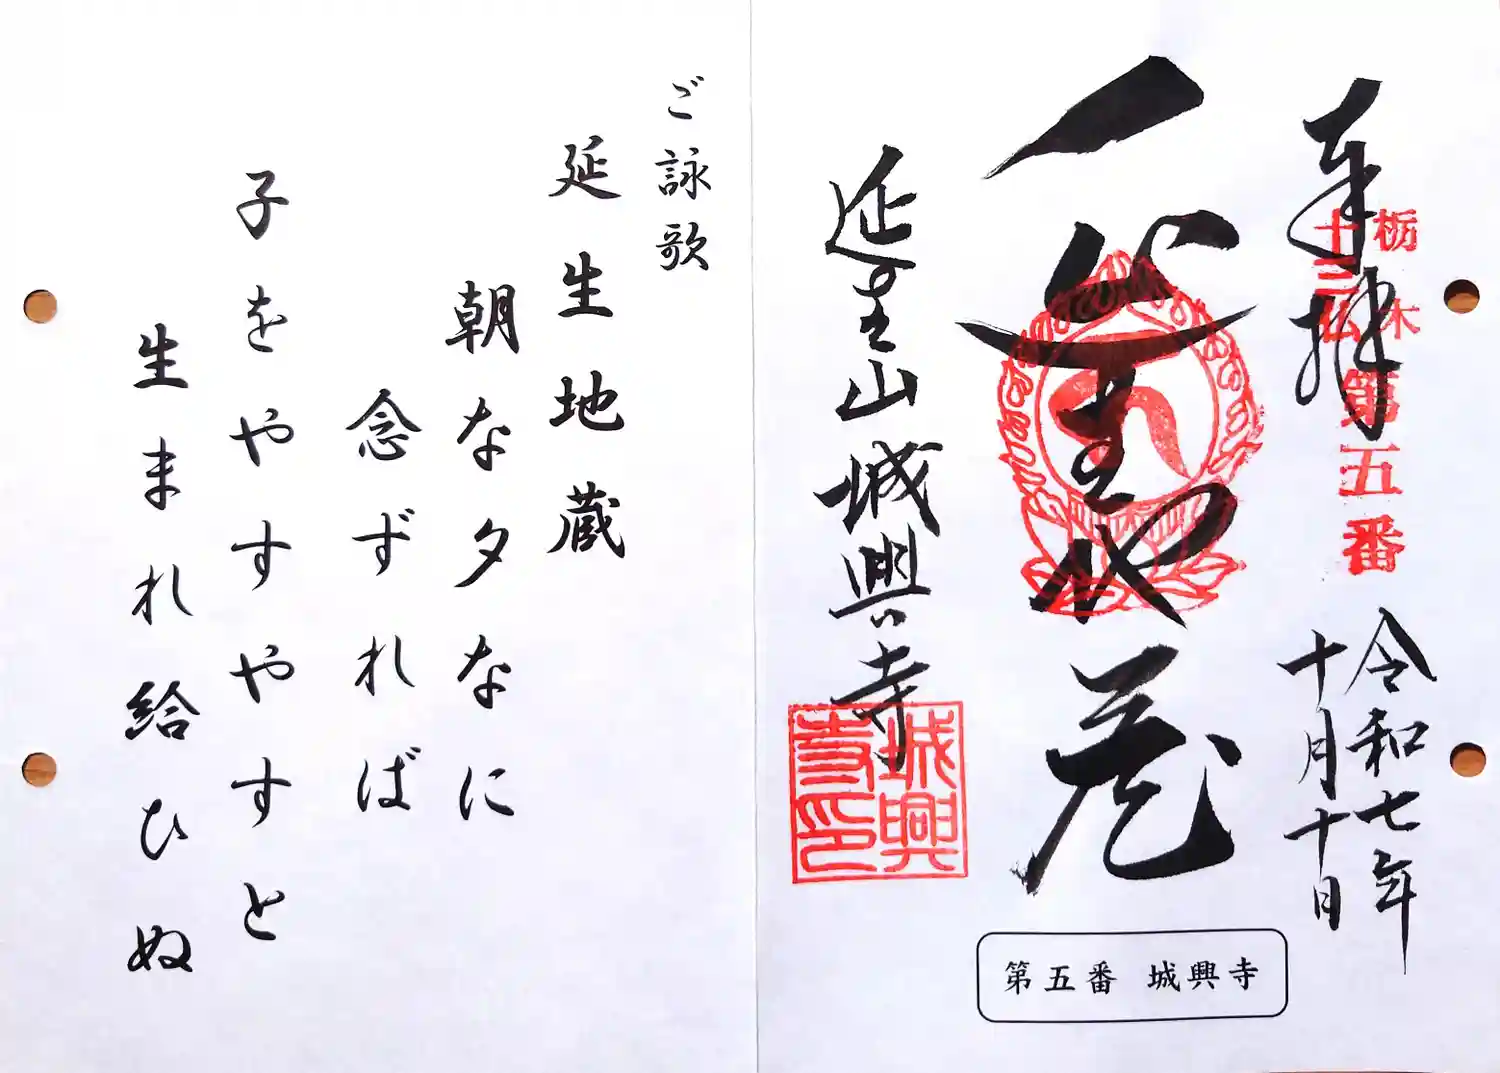 奉拝
栃木
十三仏
第五番
令和七年
十月十日
地蔵
延生山城興寺
城興
寺印
第五番 城興寺
ご詠歌
延生地蔵
朝な夕なに
念ずれば
子をやすやすと
生まれ給ひぬ